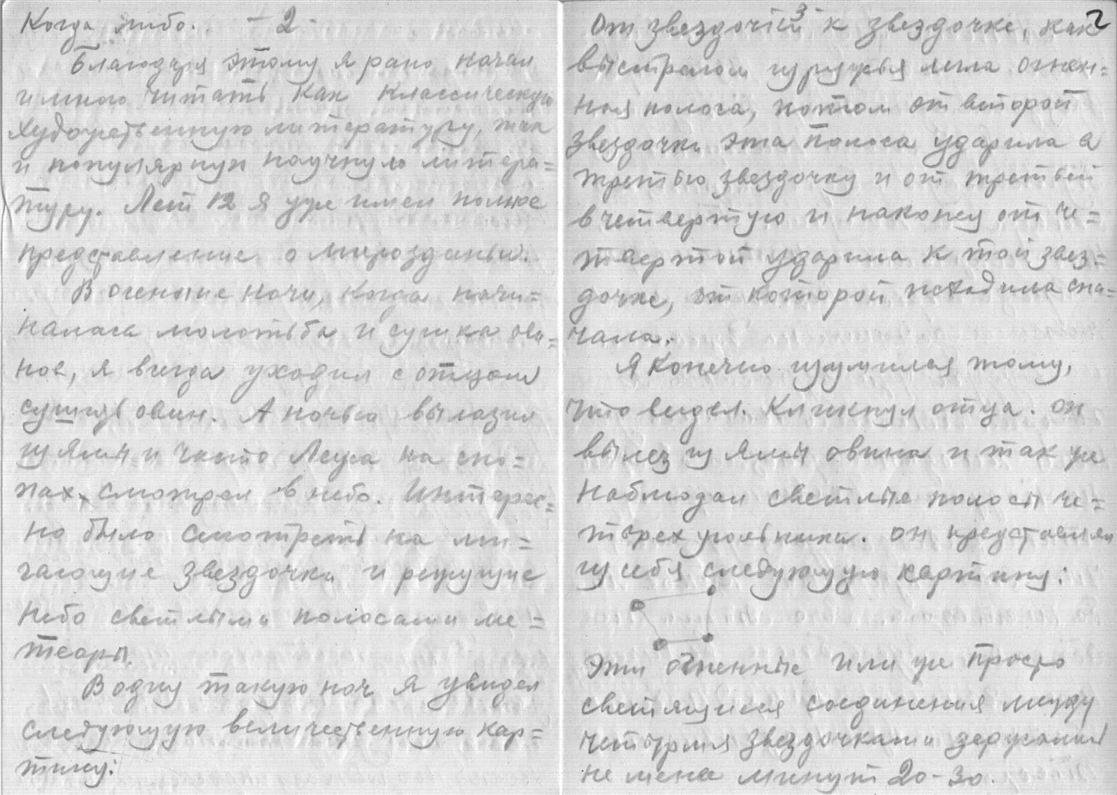 Когда либо. - 2 -
Благодаря этому я рано начал
и много читать как классическую
художественную литературу, так
и популярную научную литера=
туру. Лет 12 я уже имел полное
представление о мироздании.
В осенние ночи, когда начи=
налась молотьба и сушка ови=
нов, я всегда уходил с отцом
сушить овин. А ночью вылазил
из ямы и часто лежа на сно=
пах, смотрел в небо. Интерес=
но было смотреть на ми=
гающие звездочки и режущие
небо светлыми полосами ме=
теоры.
В одну такую ноч я увидел
следующую величественную кар=
тину:
3 2
От звездочки к звездочке, как
выстрелом из ружья легла огнен=
ная полоса, потом от второй
звездочки эта полоса ударила в
третью звездочку и от третьей
в четвертую и наконец от че=
твертой ударила к той звез=
дочке, от которой исходила сна=
чала.
Я конечно изумился тому,
что видел. Кликнул отца. Он
вылез из ямы овина и так же
наблюдал светлые полосы че=
тырехугольника. Он представлял
из себя следующую картину:
Эти огненные или же просто
светящиеся соединения между
четырмя звездочками держались
не мене минут 20-30.